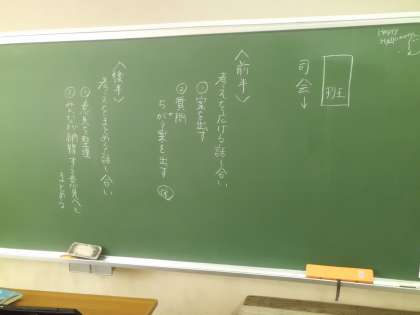 Happy
Halloween
班
司会↓
〈前半〉
考えを広げる話し合い
①案を出す
②質問
ちがう案を出す
〈後半〉
考えをまとめる話し合い
①意見を整理
②みんなが納得する意見へと
まとめる